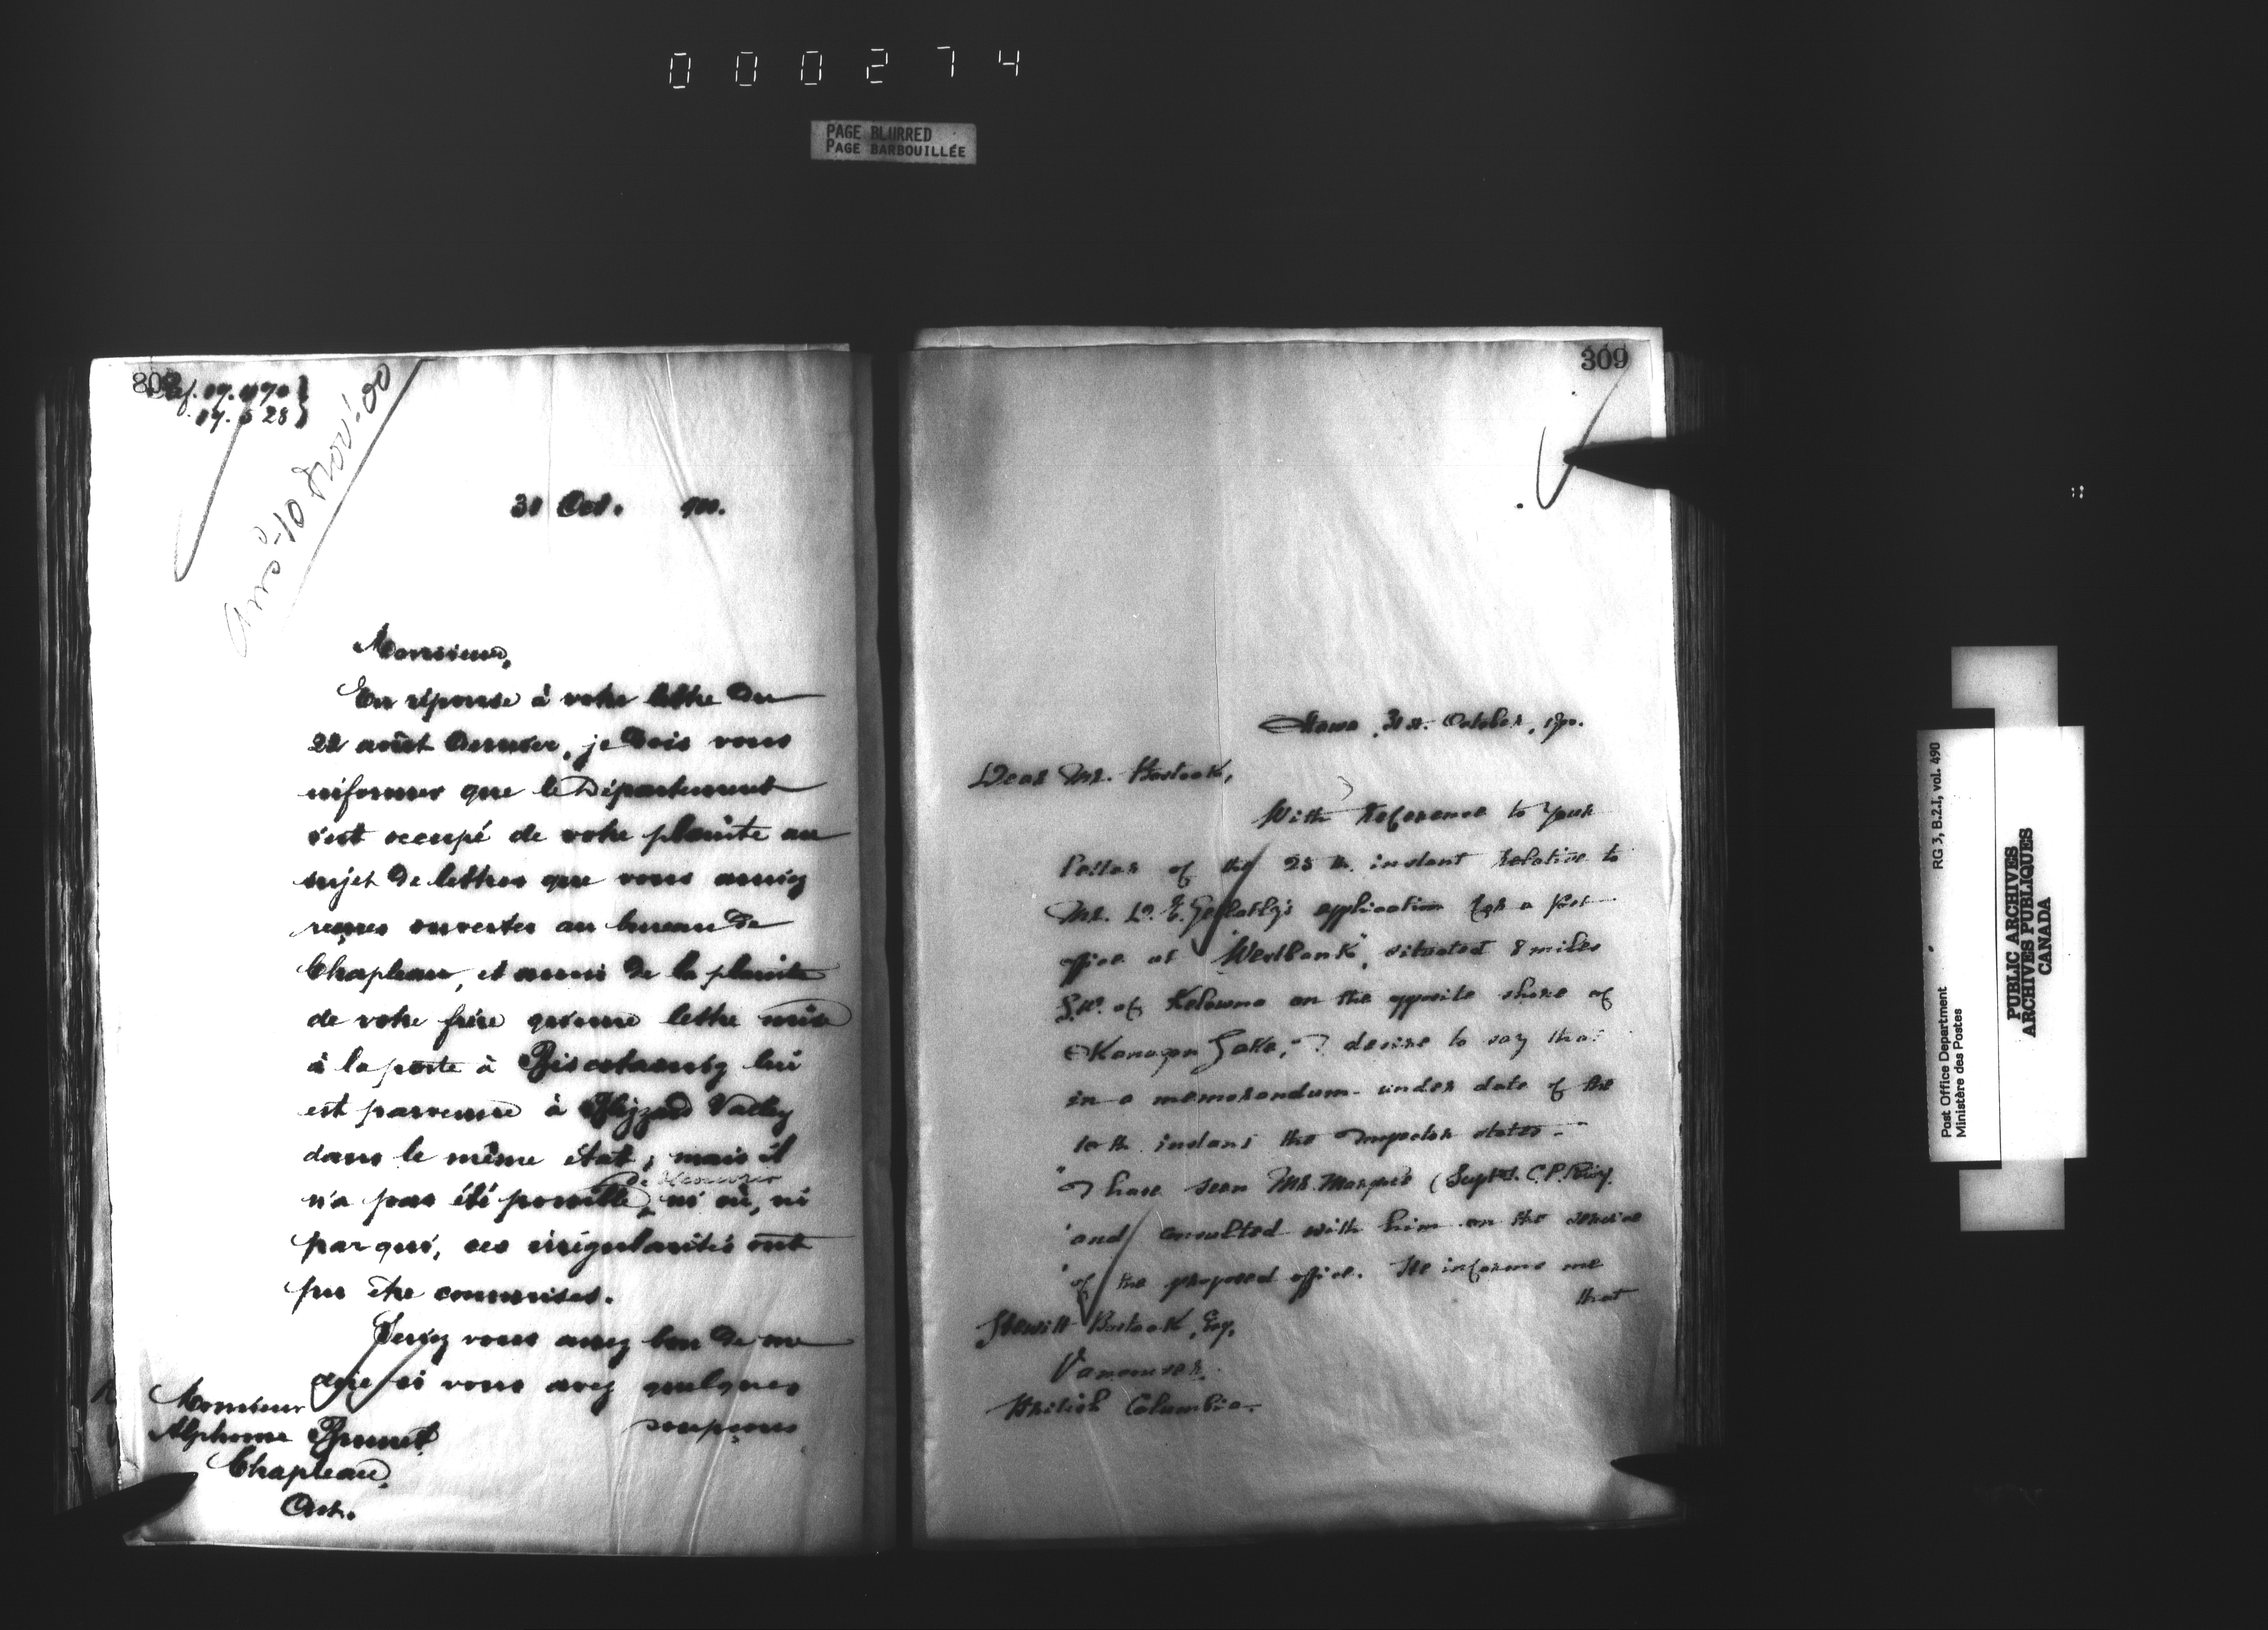 000274
PAGE BLURRED
PAGE BARBOUILLÉE
Ref.
31 Oct. 900.
Monsieur,
En réponse à votre lettre du
22 août dernier, je dois vous
informer que le Département
s'est occupé de votre plainte au
sujet de lettres que vous auriez
reçues ouvertes au bureau de
Chapleau, et aussi de la plainte
de votre frère qu'une lettre mise
à la poste à Biscotasing lui
est parvenue à Valley
dans le même état; mais il
n'a pas été possible de découvrir ni où, ni
par qui, ces irrégularités ont
pu être commises.
Seriez vous assez bon de me
dire si vous avez quelques
soupçons
Monsieur
Alphonse Brunet
Chapleau,
Ont.
309
Ottawa, 31st. October, 1900.
Dear Mr. Bostock,
With reference to your
letter of the 25th instant relative to
Mr. D. E. Gellatly's application for a post
office at "Westbank", situated 8 miles
S.W. of Kelowna on the opposite shore of
Okanagan Lake, I desire to say that
in a memorandum under date of the
10th instant the Inspector states -
"I have seen Mr. Marpole (Supt. C.P. Ry.
"and consulted with him on the service
"of the proposed office. He informs me
that
Hewitt Bostock, Esq.
Vancouver.
British Columbia.
Post Office Department
Ministère des Postes
RG 3, B.2.1, vol. 490
PUBLIC ARCHIVES
ARCHIVES PUBLIQUES
CANADA